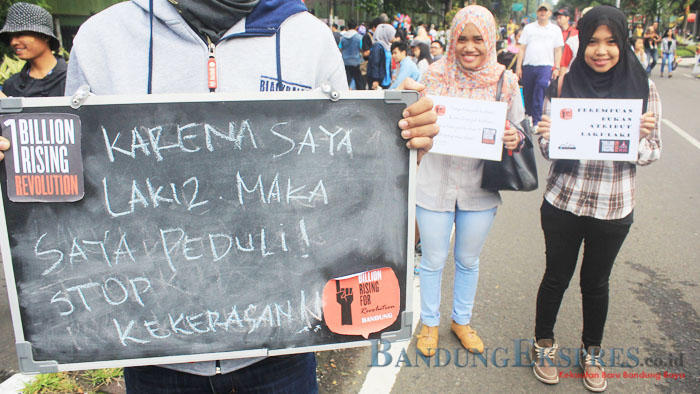 1 BILLION
RISING
REVOLUTION
KARENA SAYA
LAKI2. MAKA
SAYA PEDULI!
STOP
KEKERASAN!!
BILLION
RISING
FOR
Revolution
BANDUNG
PEREMPUAN
BUKAN
ATRIBUT
LAKI-LAKI
BANDUNG EKSPRES.co.id